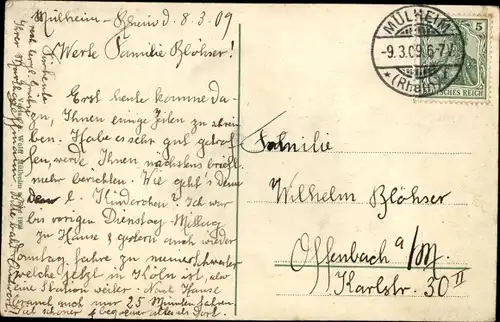 Mülheim-Rhein d. 8.3.09
Werte Familie Blöhser!
Erst heute komme da-
zu, Ihnen einige Zeilen zu schrei-
ben. Habe es sehr gut getrof-
fen, werde Ihnen nächstens briefl.
mehr berichten. Wie geht's denn
d. Kinderchen? Ich war
vorigen Dienstag Mittag
zu Hause & gestern auch wieder
Sonntag. Fahre zu meiner Schwester
welche jetzt in Köln ist, also
eine Station weiter. Nach Hause
brauch ich nur 25 Minuten fahren.
viel schöner & bequemer alles als dort.
MÜLHEIM
-9.3.09.6-7V.
(RHEIN)
5
DEUTSCHES REICH
Familie
Wilhelm Blöhser
Offenbach a/M.
Karlstr. 30 II